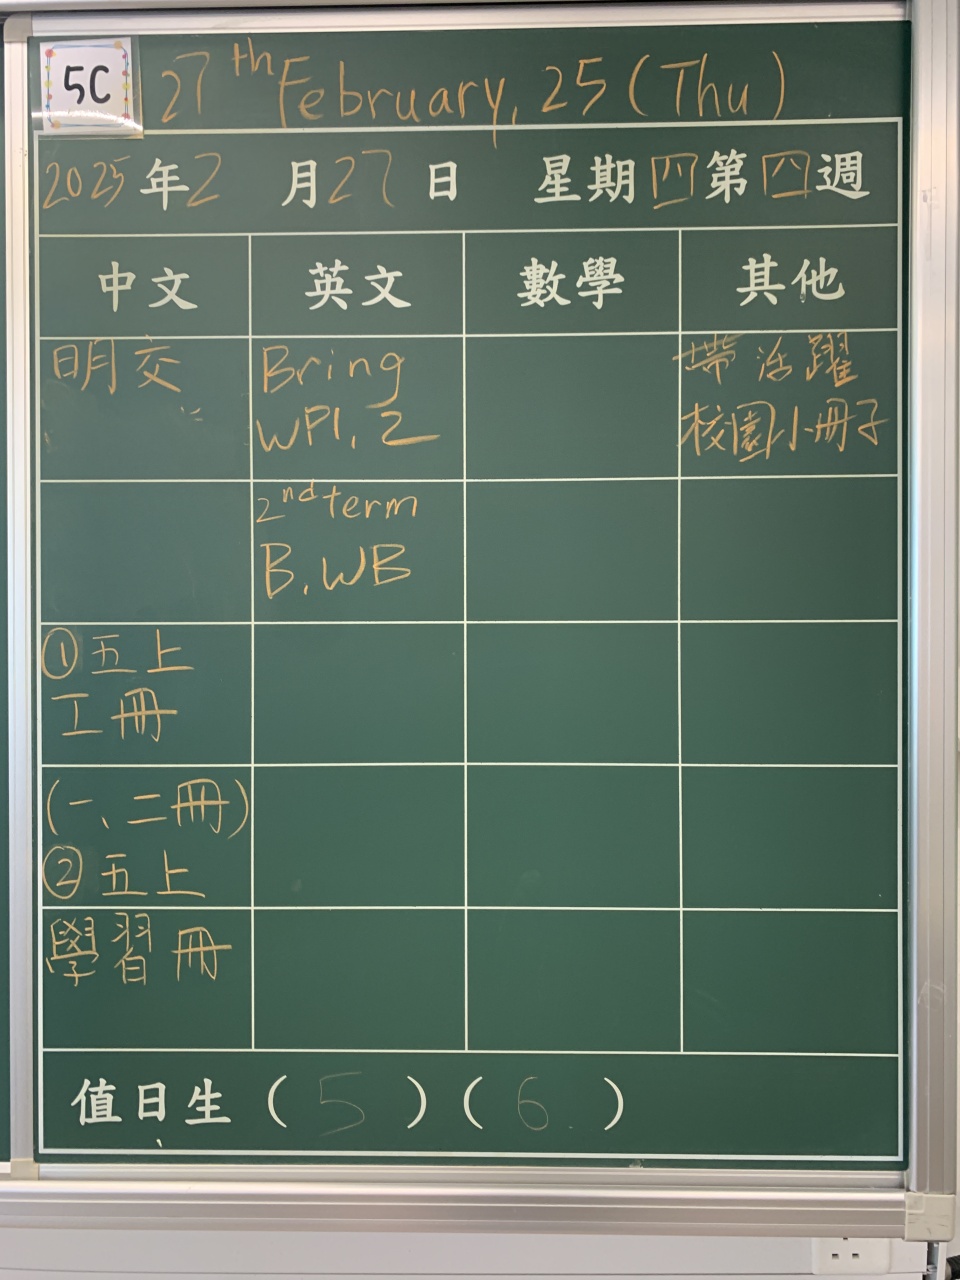 5C
27th February, 25 (Thu)
2025年2月27日 星期四第四週
中文 英文 數學 其他
明交
Bring
WP1, 2
帶活躍
校園小冊子
2nd term
B, WB
①五上
工冊
(一、二冊)
②五上
學習冊
值日生 ( 5 ) ( 6 )